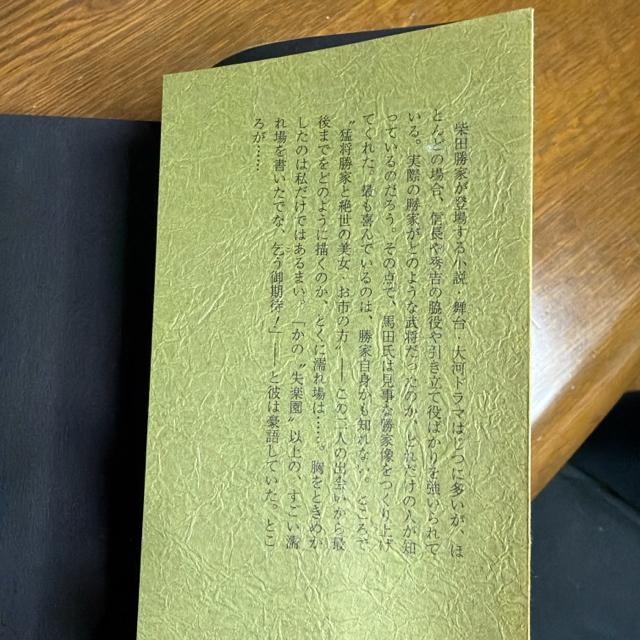 柴田勝家が登場する小説・舞台・大河ドラマはじつに多いが、ほ
とんどの場合、信長や秀吉の脇役や引き立て役ばかりを強いられて
いる。実際の勝家がどのような武将だったのか、どれだけの人が知
っているのだろう。その点で、馬田氏は見事な勝家像をつくり上げ
てくれた。最も喜んでいるのは、勝家自身かも知れない。ところで
〝猛将勝家と絶世の美女・お市の方〟――この二人の出会いから最
後までをどのように描くのか、とくに濡れ場は……。胸をときめか
したのは私だけではあるまい。「かの〝失楽園〟以上の、すごい濡
れ場を書いたでな、乞う御期待！」――と彼は豪語していた。とこ
ろが……